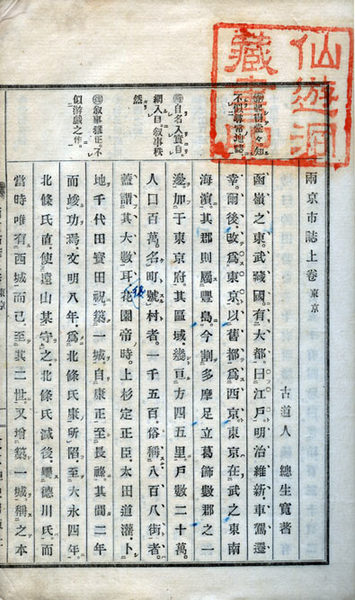 仙遊洞
藏書印
兩京市誌上卷 東京
古道人 總生寬著
函嶺之東。武藏國有大都。曰江戶。明治維新。車駕遷
幸。爾後改爲東京。以舊都爲西京。東京在武之東南
海濱。其郡則屬豐島。今割多摩足立葛飾數郡之一
邊。加于東京府。其區域幾亘方四五里。戶數二十萬。
人口百萬。名町號村者。一千五百。俗稱八百八街者。
蓋謂其大數耳。花園帝時。上杉定正臣太田道灌。卜
地千代田寶田祝築一城。自康正至長祿。其間二年
而竣功焉。文明八年。爲北條氏康所陷。至大永四年。
北條氏直使遠山某守之。北條氏滅後。屬德川氏。而
當時唯有西城而已。至其二世。又增築一城。稱之本
自名入實。自
綱入目。敘事秩
然
敘事正。不
似游戲之作。